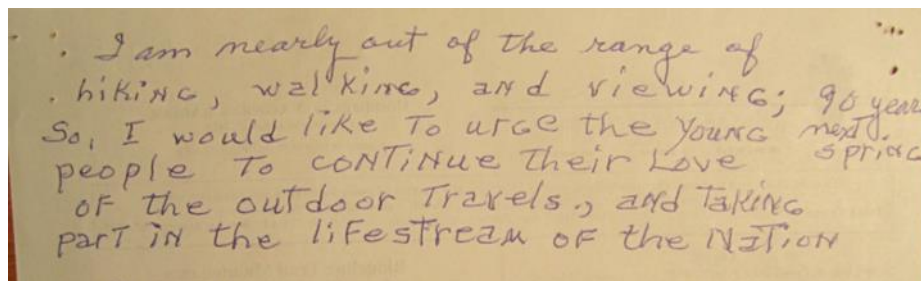 . I am nearly out of the range of
. hiking, walking, and viewing; 90 year
So, I would like To urge the young next
people To continue Their Love spring
of the outdoor Travels., and Taking
part in the lifestream of the Nation